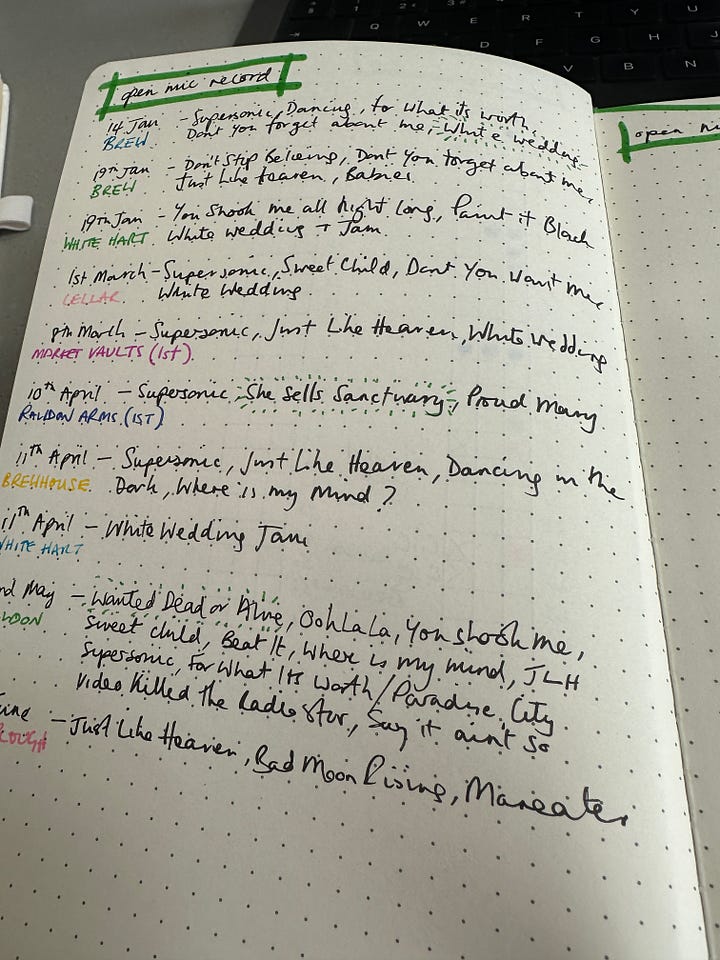 open mic record
14 Jan - Supersonic, Dancing, for what its worth,
BREW Don't you forget about me, White wedding
19th Jan - Don't Stop Believing, Dont You forget about me,
BREW Just Like Heaven, Babies
19th Jan - You Shook me all Night Long, Paint it Black
WHITE HART White wedding + Jam
1st March - Supersonic, Sweet Child, Dont You Want me,
CELLAR White Wedding
8th March - Supersonic, Just Like Heaven, White Wedding
MARKET VAULTS (1st)
10th April - Supersonic, She Sells Sanctuary, Proud Mary
ARMS (1ST)
11th April - Supersonic, Just Like Heaven, Dancing in the
BREWHOUSE Dark, Where is my Mind?
11th April - White Wedding Jam
WHITE HART
nd May - Wanted Dead or Alive, Ooh La La, You shook me,
Sweet child, Beat It, Where is my mind, JLH
Supersonic, For What Its Worth/Paradise City
Video Killed the Radio Star, Say it aint so
- Just Like Heaven, Bad Moon Rising, Maneater
open